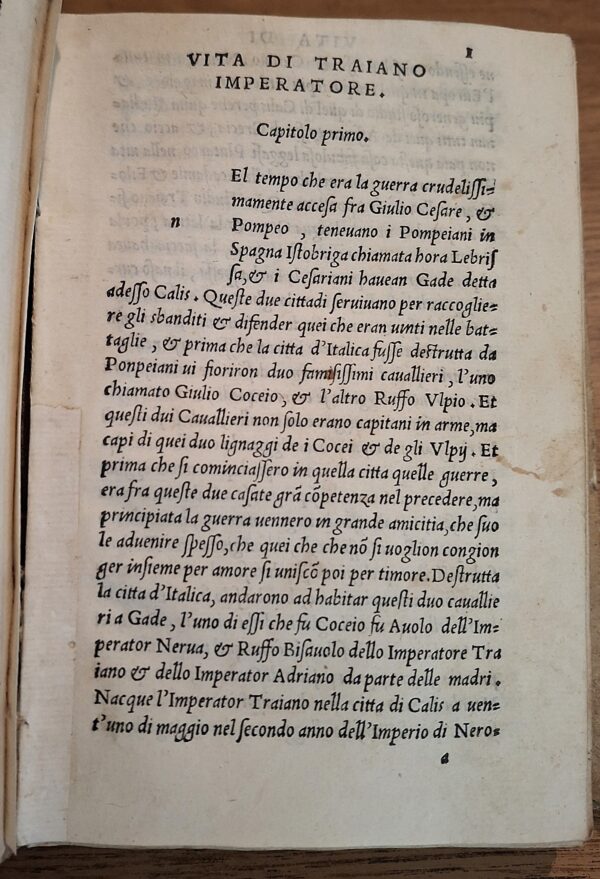 1
VITA DI TRAIANO
IMPERATORE.
Capitolo primo.
n
El tempo che era la guerra crudeliſſi=
mamente acceſa fra Giulio Ceſare, &
Pompeo, teneuano i Pompeiani in
Spagna Iſtobriga chiamata hora Lebriſ
ſa, & i Ceſariani hauean Gade detta
adeſſo Calis. Queſte due cittadi ſeruiuano per raccoglie=
re gli sbanditi & difender quei che eran uinti nelle bat=
taglie, & prima che la citta d'Italica fuſſe deſtrutta da
Ponpeiani ui fioriron duo famoſiſſimi cauallieri, l'uno
chiamato Giulio Coceio, & l'altro Ruffo Vlpio. Et
queſti dui Cauallieri non ſolo erano capitani in arme, ma
capi di quei duo lignaggi de i Cocei & de gli Vlpij. Et
prima che ſi cominciaſſero in quella citta quelle guerre,
era fra queſte due caſate grã cõpetenza nel precedere, ma
principiata la guerra uennero in grande amicitia, che ſuo
le aduenire ſpeſſo, che quei che che nõ ſi uoglion congion
ger inſieme per amore ſi uniſcõ poi per timore. Deſtrutta
la citta d'Italica, andarono ad habitar queſti duo cauallie
ri a Gade, l'uno di eſſi che fu Coceio fu Auolo dell'Im=
perator Nerua, & Ruffo Biſauolo dello Imperatore Tra
iano & dello Imperator Adriano da parte delle madri.
Nacque l'Imperator Traiano nella citta di Calis a uen=
t'uno di maggio nel ſecondo anno dell'Imperio di Nero=
a